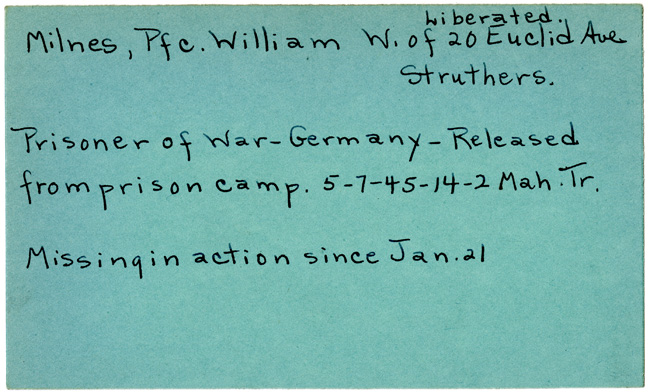 Liberated.
Milnes, Pfc. William W. of 20 Euclid Ave
Struthers.
Prisoner of War-Germany-Released
from prison camp. 5-7-45-14-2 Mah. Tr.
Missing in action since Jan. 21